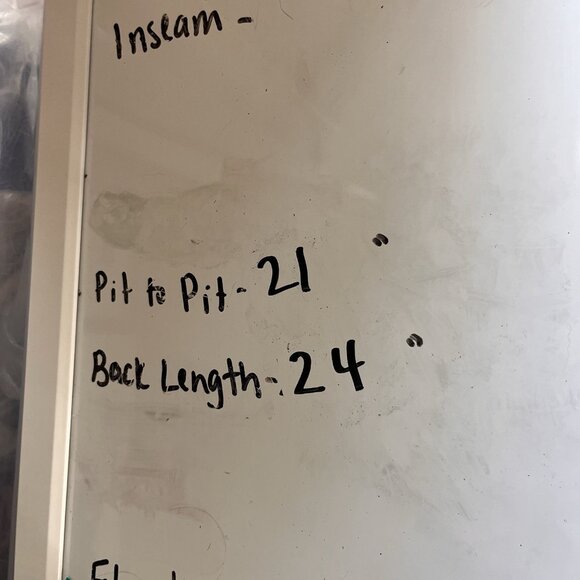 Inseam -
Pit to Pit - 21 "
Back Length - 24 "